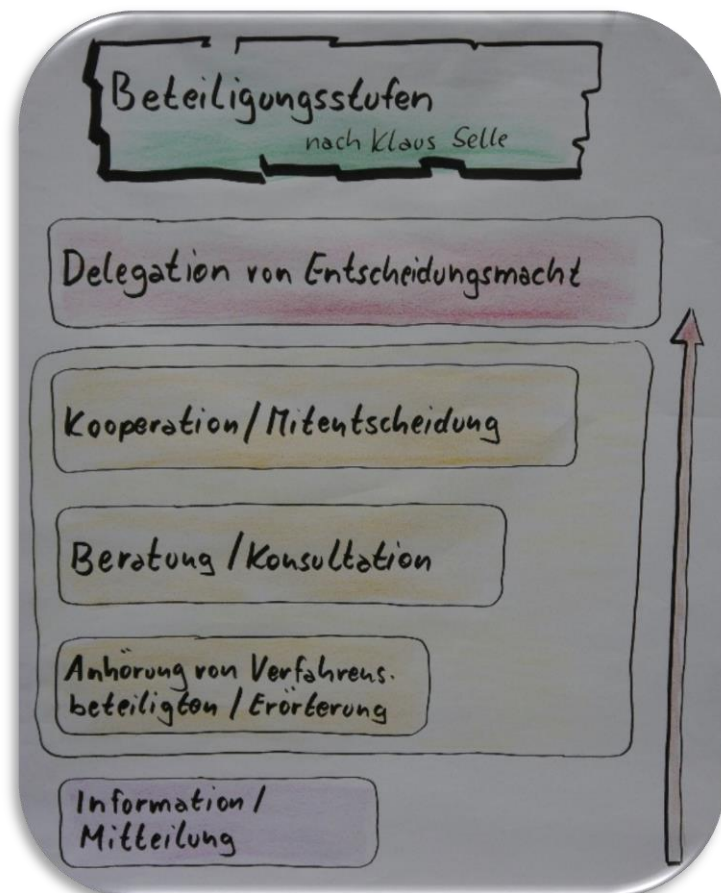 Beteiligungsstufen
nach Klaus Selle
Delegation von Entscheidungsmacht
Kooperation/Mitentscheidung
Beratung/Konsultation
Anhörung von Verfahrens-
beteiligten/Erörterung
Information/
Mitteilung